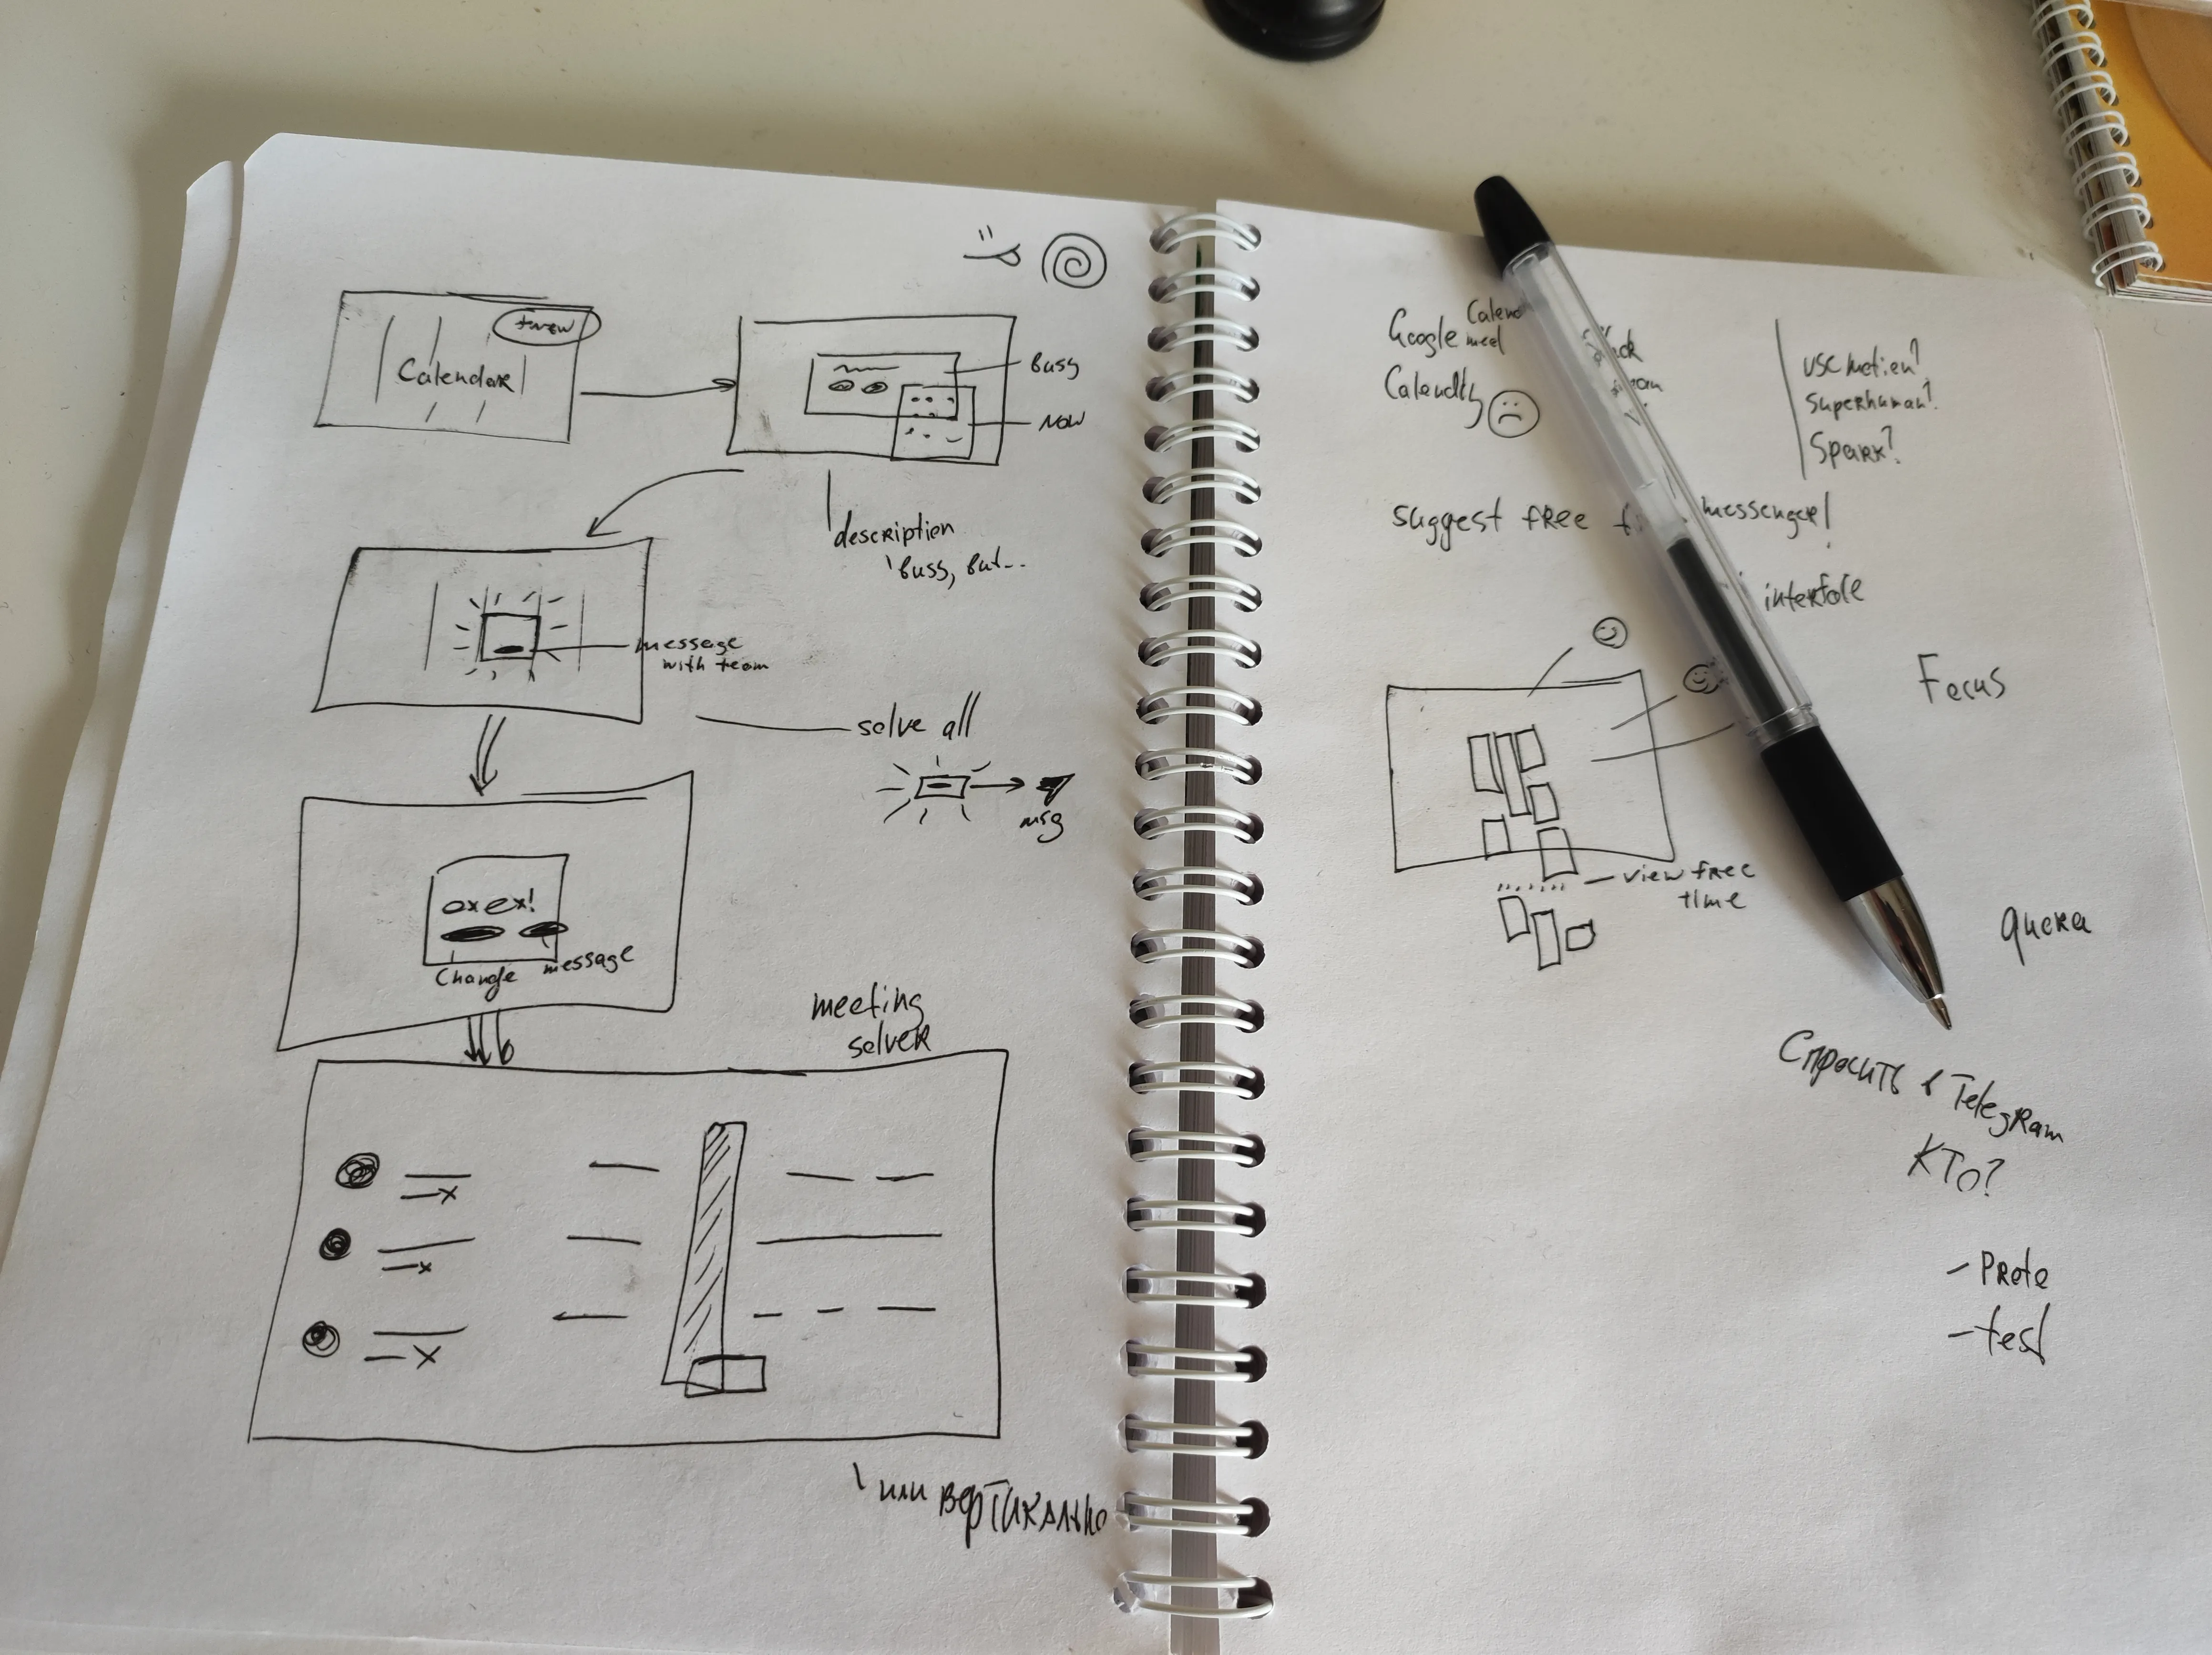 +new
Calendar
Busy
Now
description
busy, but...
message
with team
solve all
msg
oxex!
Change message
meeting
solver
или вертикально
Google Calend
meet
Calendly
Superhuman?
Spark?
suggest free
messenger!
interface
Focus
view free
time
Спросить в Telegram
КТО?
- Proto
- test